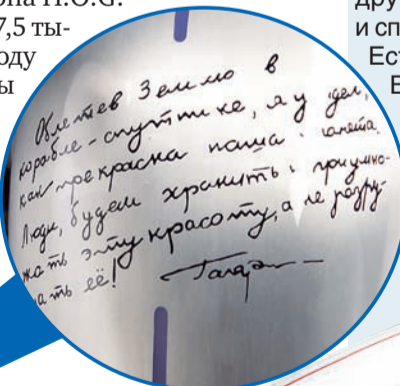 H.O.G.
7,5 ты-
оду
ы
дру
и сп
Ест
Е
Облетев Землю в
корабле-спутнике, я у дел,
как прекрасна наша ланета.
Люди, будем хранить приумно-
жать эту красоту, а не разру-
ать её! Гагар